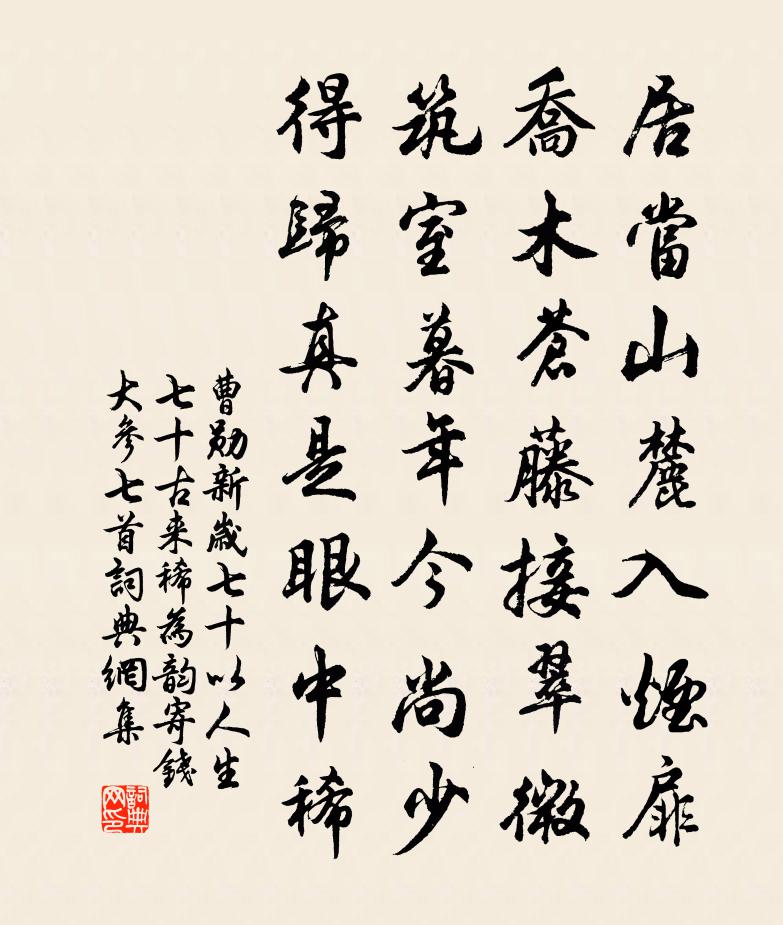 居當山麓入煙扉
喬木蒼藤接翠微
筑室暮年今尚少
得歸真是眼中稀
曹勛新歲七十以人生
七十古来稀為韵寄錢
大參七首詞典網集
詞典网印